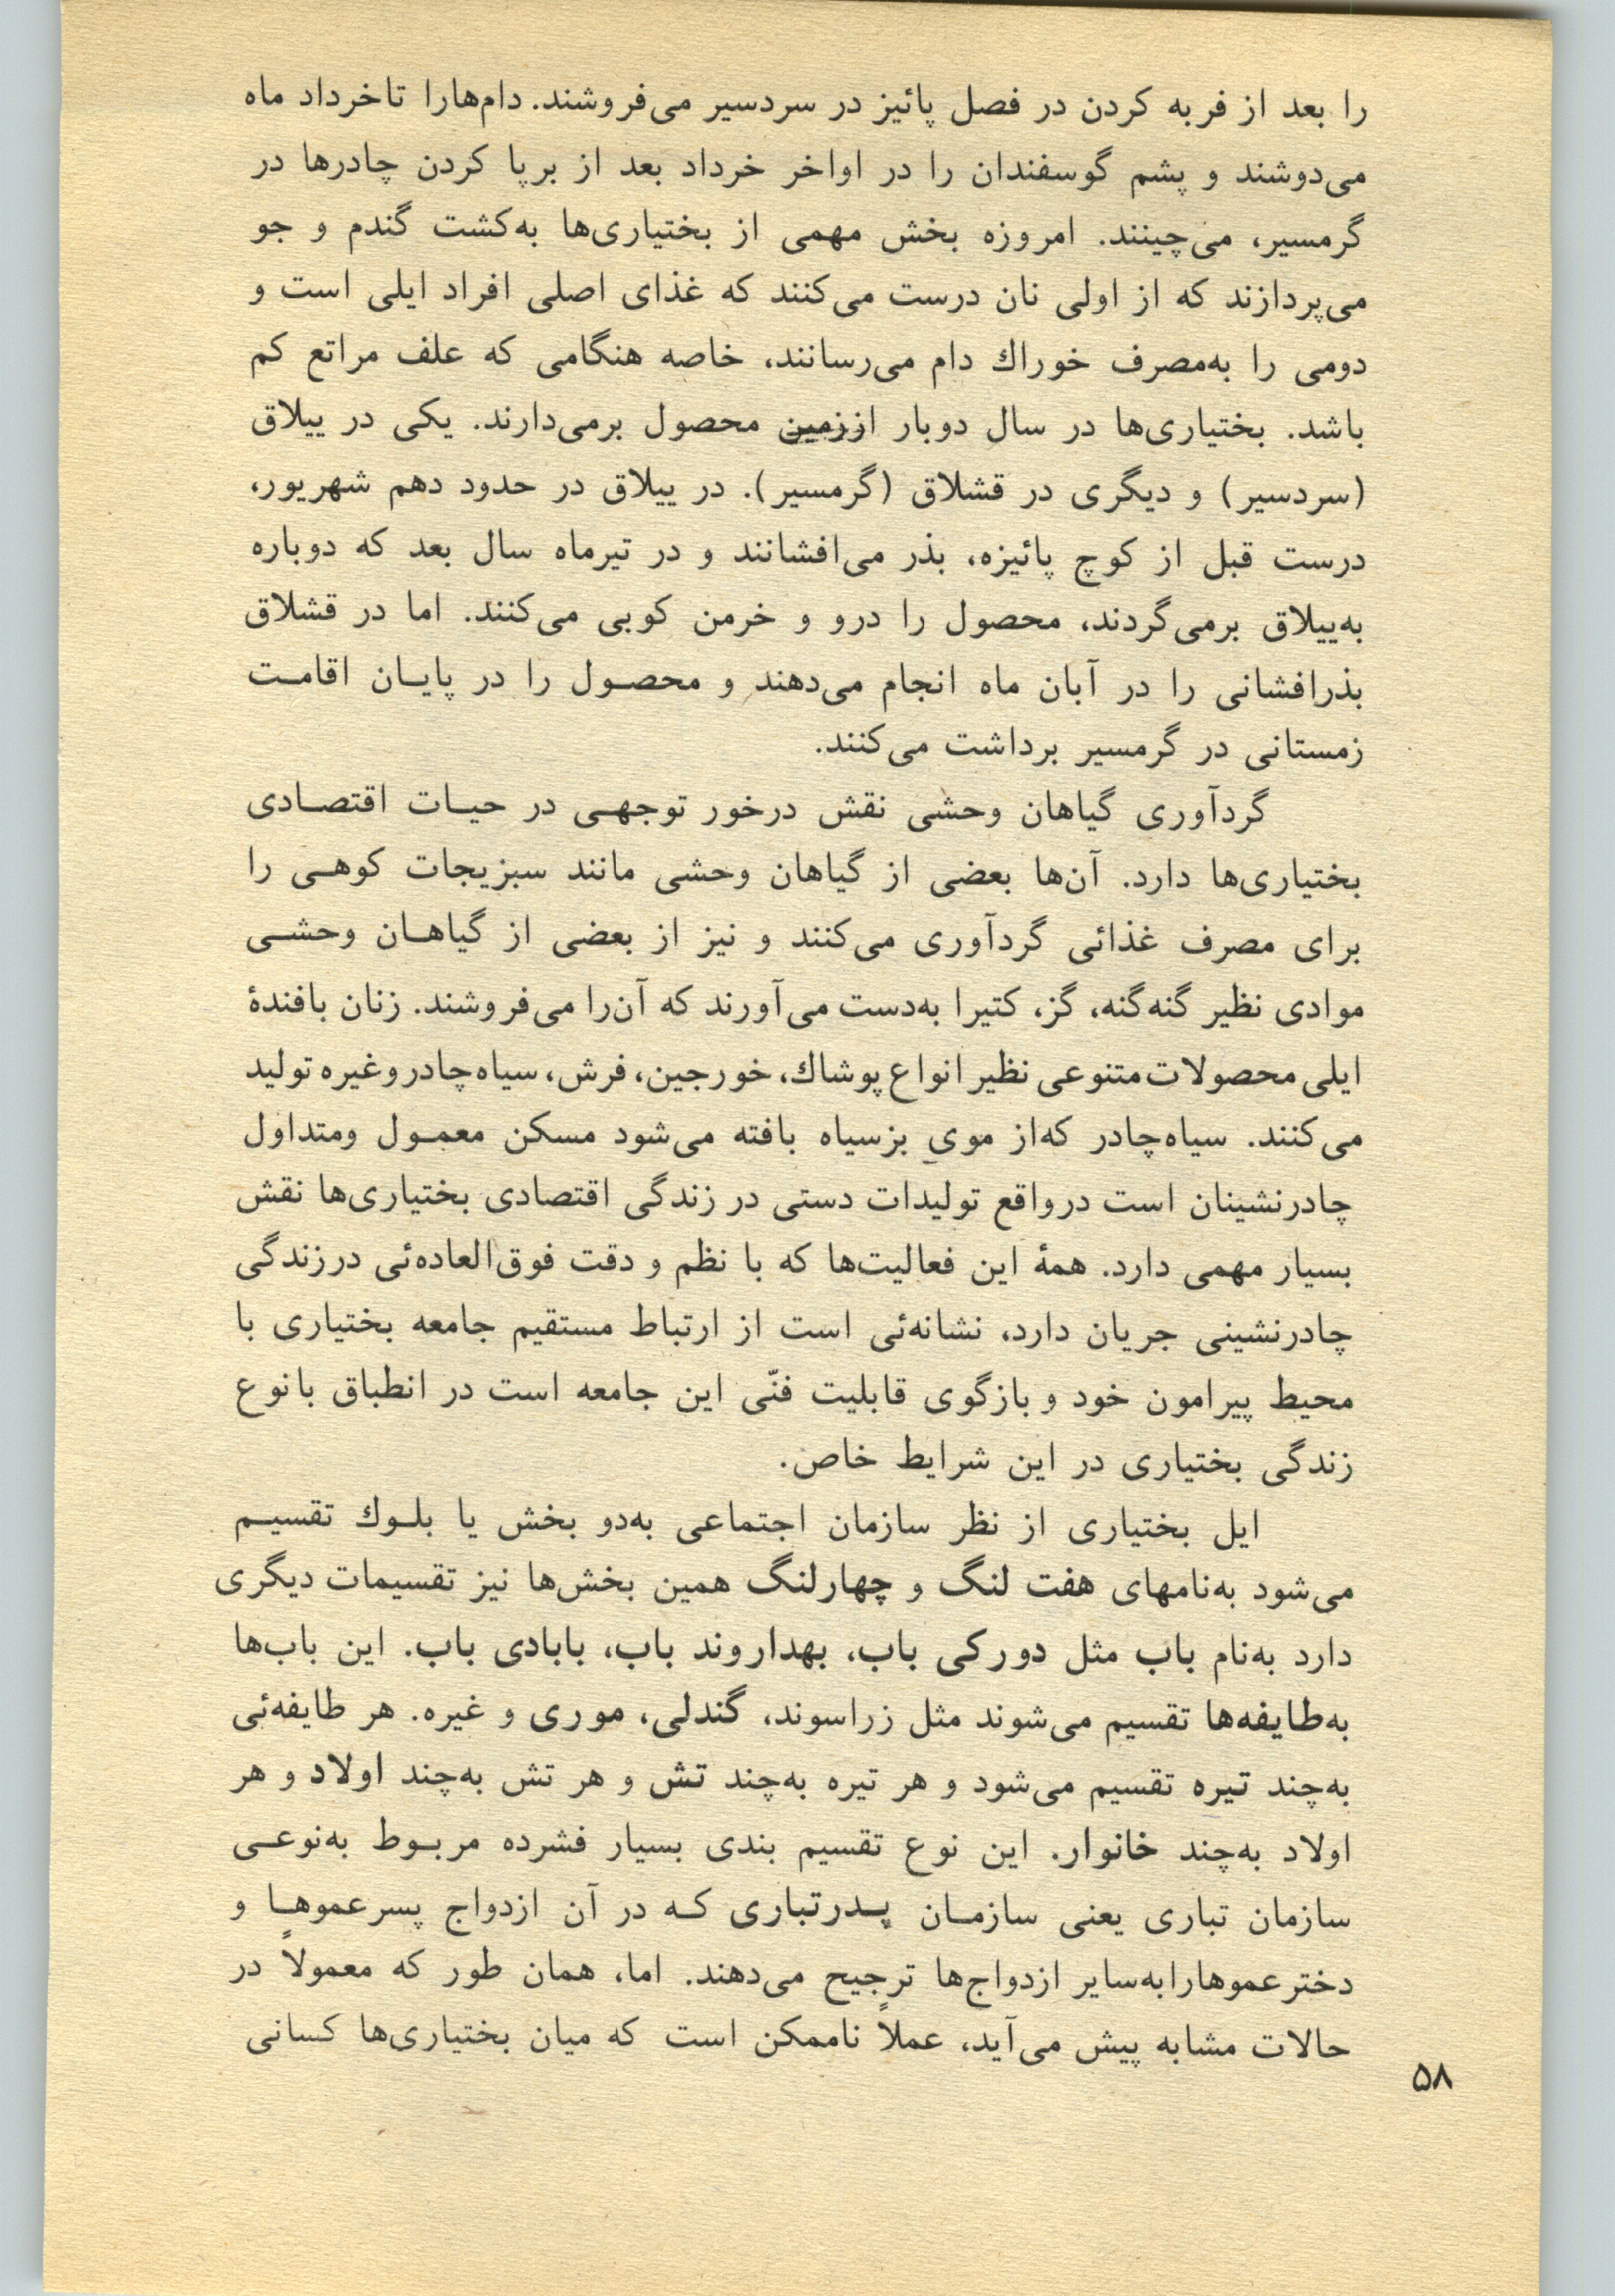 را بعد از فربه کردن در فصل پائیز در سردسیر می‌فروشند. دام‌هارا تاخرداد ماه
می‌دوشند و پشم گوسفندان را در اواخر خرداد بعد از برپا کردن چادرها در
گرمسیر، می‌چینند. امروزه بخش مهمی از بختیاری‌ها به‌کشت گندم و جو
می‌پردازند که از اولی نان درست می‌کنند که غذای اصلی افراد ایلی است و
دومی را به‌مصرف خوراك دام می‌رسانند، خاصه هنگامی که علف مراتع کم
باشد. بختیاری‌ها در سال دوبار اززمین محصول برمی‌دارند. یکی در ییلاق
(سردسیر) و دیگری در قشلاق (گرمسیر). در ییلاق در حدود دهم شهریور،
درست قبل از کوچ پائیزه، بذر می‌افشانند و در تیرماه سال بعد که دوباره
به‌ییلاق برمی‌گردند، محصول را درو و خرمن کوبی می‌کنند. اما در قشلاق
بذرافشانی را در آبان ماه انجام می‌دهند و محصـول را در پایـان اقامـت
زمستانی در گرمسیر برداشت می‌کنند.
گردآوری گیاهان وحشی نقش درخور توجهـی در حیـات اقتصـادی
بختیاری‌ها دارد. آن‌ها بعضی از گیاهان وحشی مانند سبزیجات کوهـی را
برای مصرف غذائی گردآوری می‌کنند و نیز از بعضی از گیاهـان وحشـی
موادی نظیر گنه‌گنه، گز، کتیرا به‌دست می‌آورند که آن‌را می‌فروشند. زنان بافندهٔ
ایلی محصولات متنوعی نظیر انواع پوشاك، خورجین، فرش، سیاه‌چادر وغیره تولید
می‌کنند. سیاه‌چادر که‌از مویِ بزسیاه بافته می‌شود مسکن معمـول ومتداول
چادرنشینان است درواقع تولیدات دستی در زندگی اقتصادی بختیاری‌ها نقش
بسیار مهمی دارد. همهٔ این فعالیت‌ها که با نظم و دقت فوق‌العاده‌ئی درزندگی
چادرنشینی جریان دارد، نشانه‌ئی است از ارتباط مستقیم جامعه بختیاری با
محیط پیرامون خود و بازگوی قابلیت فنّی این جامعه است در انطباق بانوع
زندگی بختیاری در این شرایط خاص.
ایل بختیاری از نظر سازمان اجتماعی به‌دو بخش یا بلـوك تقسیـم
می‌شود به‌نامهای هفت لنگ و چهارلنگ همین بخش‌ها نیز تقسیمات دیگری
دارد به‌نام باب مثل دورکی باب، بهداروند باب، بابادی باب. این باب‌ها
به‌طایفه‌ها تقسیم می‌شوند مثل زراسوند، گندلی، موری و غیره. هر طایفه‌ئی
به‌چند تیره تقسیم می‌شود و هر تیره به‌چند تش و هر تش به‌چند اولاد و هر
اولاد به‌چند خانوار. این نوع تقسیم بندی بسیار فشرده مربـوط به‌نوعـی
سازمان تباری یعنی سازمـان پـدرتباری کـه در آن ازدواج پسرعموهـا و
دخترعموهارابه‌سایر ازدواج‌ها ترجیح می‌دهند. اما، همان طور که معمولاً در
حالات مشابه پیش می‌آید، عملاً ناممکن است که میان بختیاری‌ها کسانی
۵۸